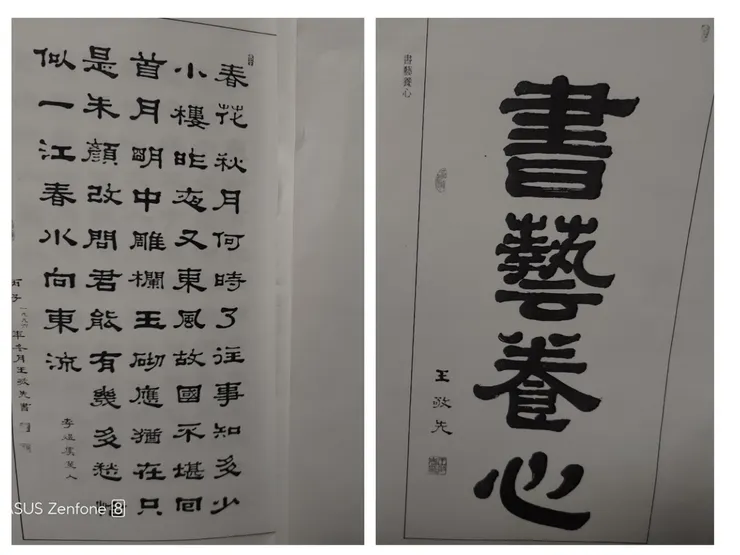 春花秋月何時了往事知多少
小樓昨夜又東風故國不堪回
首月明中雕欄玉砌應猶在只
是朱顏改問君能有幾多愁恰
似一江春水向東流
李煜虞美人
丙子一九九六年冬月王敬先書
ASUS Zenfone 8
書藝養心
書藝養心
王敬先